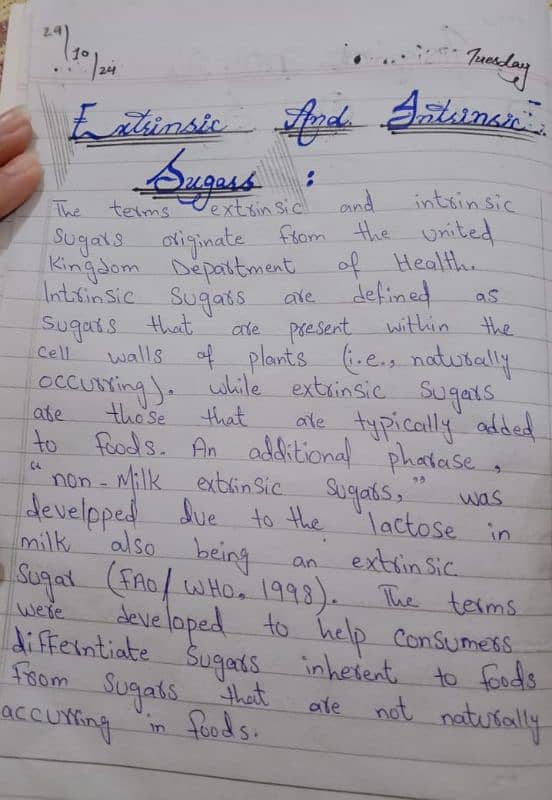 29/10/24
Tuesday
Extrinsic And Intrinsic
Sugars :
The terms extrinsic and intrinsic
sugars originate from the united
Kingdom Department of Health.
Intrinsic Sugars are defined as
Sugars that are present within the
cell walls of plants (i.e., naturally
occurring). while extrinsic sugars
are those that are typically added
to foods. An additional pharase,
"non-Milk extrinsic sugars," was
developed due to the lactose in
milk also being an extrinsic
Sugar (FAO/WHO, 1998). The terms
were developed to help consumers
differntiate Sugars inherent to foods
From Sugars that are not naturally
accurring in foods.